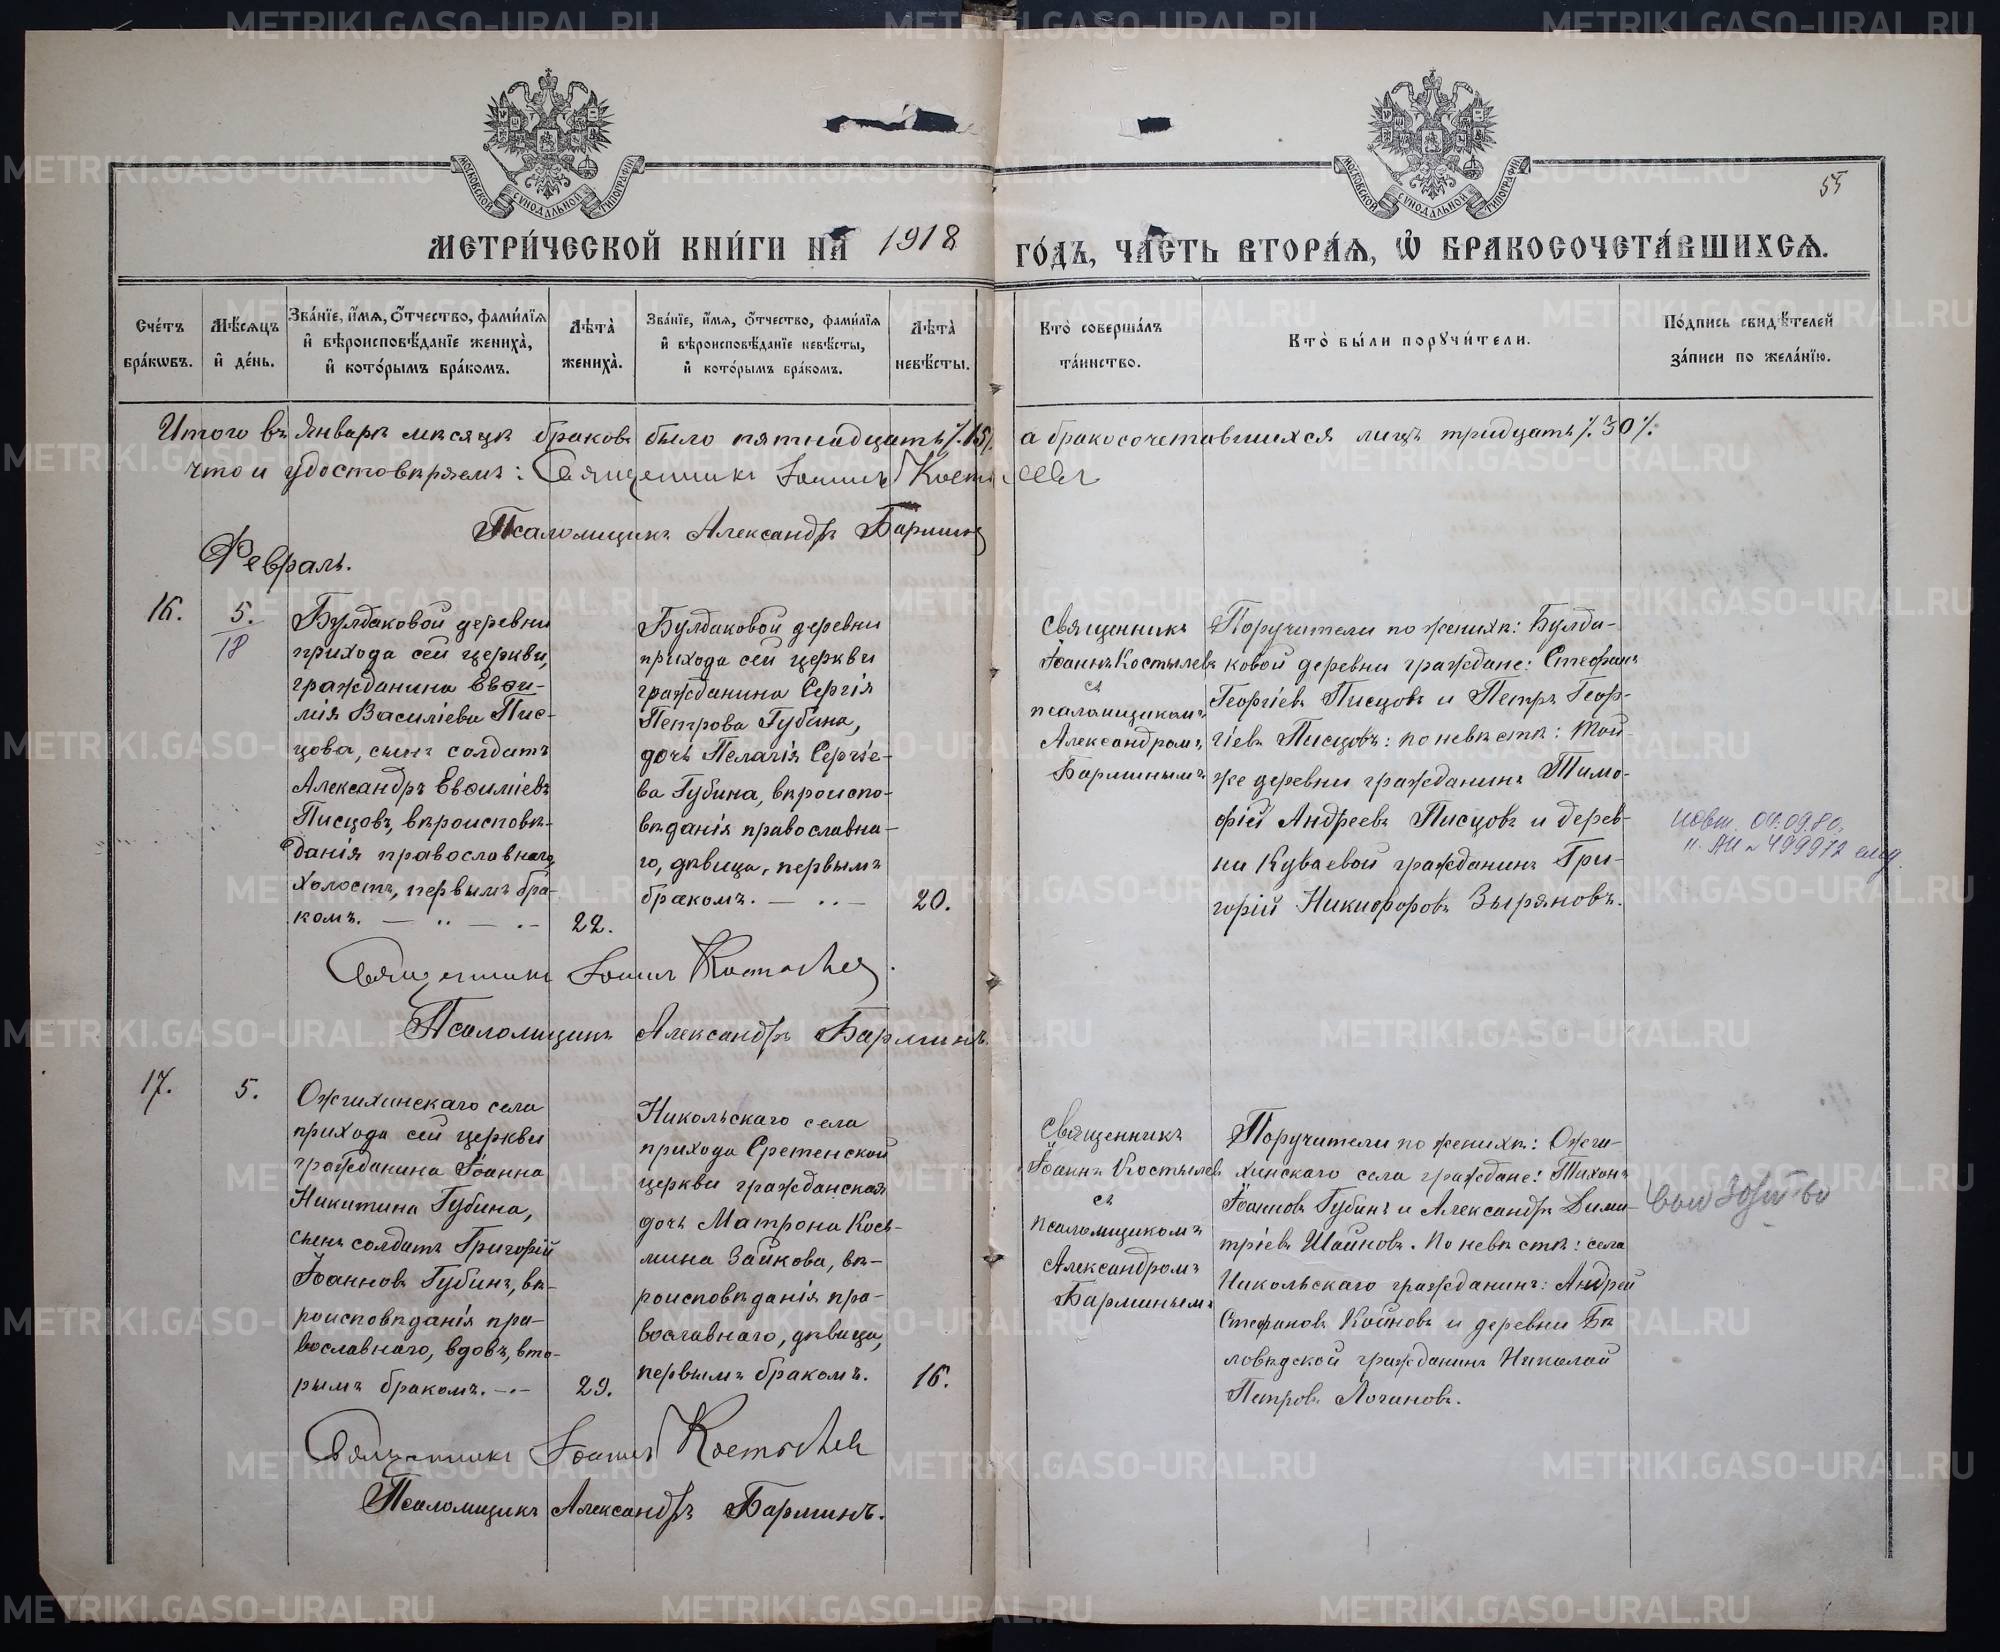 МОСКОВСКОЙ СѴНОДАЛЬНОЙ ТИПОГРАФІИ
МОСКОВСКОЙ СѴНОДАЛЬНОЙ ТИПОГРАФІИ
55
МЕТРИ́ЧЕСКОЙ КНИ́ГИ НА 1918 ГО́ДЪ, ЧА́СТЬ ВТОРА́Ѧ, Ѡ҆ БРАКОСОЧЕТА́ВШИХСѦ.
Сче́тъ
бра́кѡвъ.
Мѣ́сѧцъ
и҆ де́нь.
Зва́нїе, и҆́мѧ, ѻ҆́тчество, фами́лїѧ
и҆ вѣроисповѣ́данїе жениха̀,
и҆ кото́рымъ бра́комъ.
Лѣ́та̀
жениха̀.
Зва́нїе, и҆́мѧ, ѻ҆́тчество, фами́лїѧ
и҆ вѣроисповѣ́данїе невѣ́сты,
и҆ кото́рымъ бра́комъ.
Лѣ́та̀
невѣ́сты.
Кто̀ соверша́лъ
та́инство.
Кто̀ бы́ли порꙋчи́тели.
По́дпись свидѣ́телей
за́писи по жела́нїю.
Итого въ Январѣ мѣсяцѣ браковъ было пятнадцать /.15/. а бракосочетавшихся лицъ тридцать /.30/.
что и удостовѣряемъ: Священникъ Іоаннъ Костылевъ
Псаломщикъ Александръ Барминъ
Февраль.
16.
5.
18
Булдаковой деревни
прихода сей церкви,
гражданина Евѳи-
мія Василіева Пис-
цова, сынъ солдатъ
Александръ Евѳиміевъ
Писцовъ, вѣроисповѣ-
данія православнаго,
холостъ, первымъ бра-
комъ. — .. — .. —
22.
Булдаковой деревни
прихода сей церкви
гражданина Сергія
Петрова Губина,
дочь Пелагія Сергіе-
ва Губина, вѣроиспо-
вѣданія православна-
го, дѣвица, первымъ
бракомъ. — .. —
20.
Священникъ
Іоаннъ Костылевъ
съ
псаломщикомъ
Александромъ
Барминымъ
Поручители по женихѣ: Булда-
ковой деревни граждане: Стефанъ
Георгіевъ Писцовъ и Петръ Геор-
гіевъ Писцовъ: по невѣстѣ: той-
же деревни гражданинъ Тимо-
фій Андреевъ Писцовъ и дерев-
ни Куваевой гражданинъ Гри-
горій Никифоровъ Зыряновъ.
повт. 04.09.80.
Священникъ Іоаннъ Костылевъ.
Псаломщикъ Александръ Барминъ.
17.
5.
Ожгихинскаго села
прихода сей церкви
гражданина Іоанна
Никитина Губина,
сынъ солдатъ Григорій
Іоанновъ Губинъ, вѣ-
роисповѣданія пра-
вославнаго, вдовъ, вто-
рымъ бракомъ. —.—
29.
Никольскаго села
прихода Срѣтенской
церкви гражданская
дочь Матрона Кось-
мина Зайкова, вѣ-
роисповѣданія пра-
вославнаго, дѣвица,
первымъ бракомъ.
16.
Священникъ
Іоаннъ Костылевъ
съ
псаломщикомъ
Александромъ
Барминымъ
Поручители по женихѣ: Ожги-
хинскаго села граждане: Тихонъ
Іоанновъ Губинъ и Александръ Дими-
тріевъ Шаиновъ. По невѣстѣ: села
Никольскаго гражданинъ: Андрей
Стефановъ Койновъ и деревни Бѣ
ловѣдской гражданинъ Николай
Петровъ Логиновъ.
Священникъ Іоаннъ Костылевъ
Псаломщикъ Александръ Барминъ.